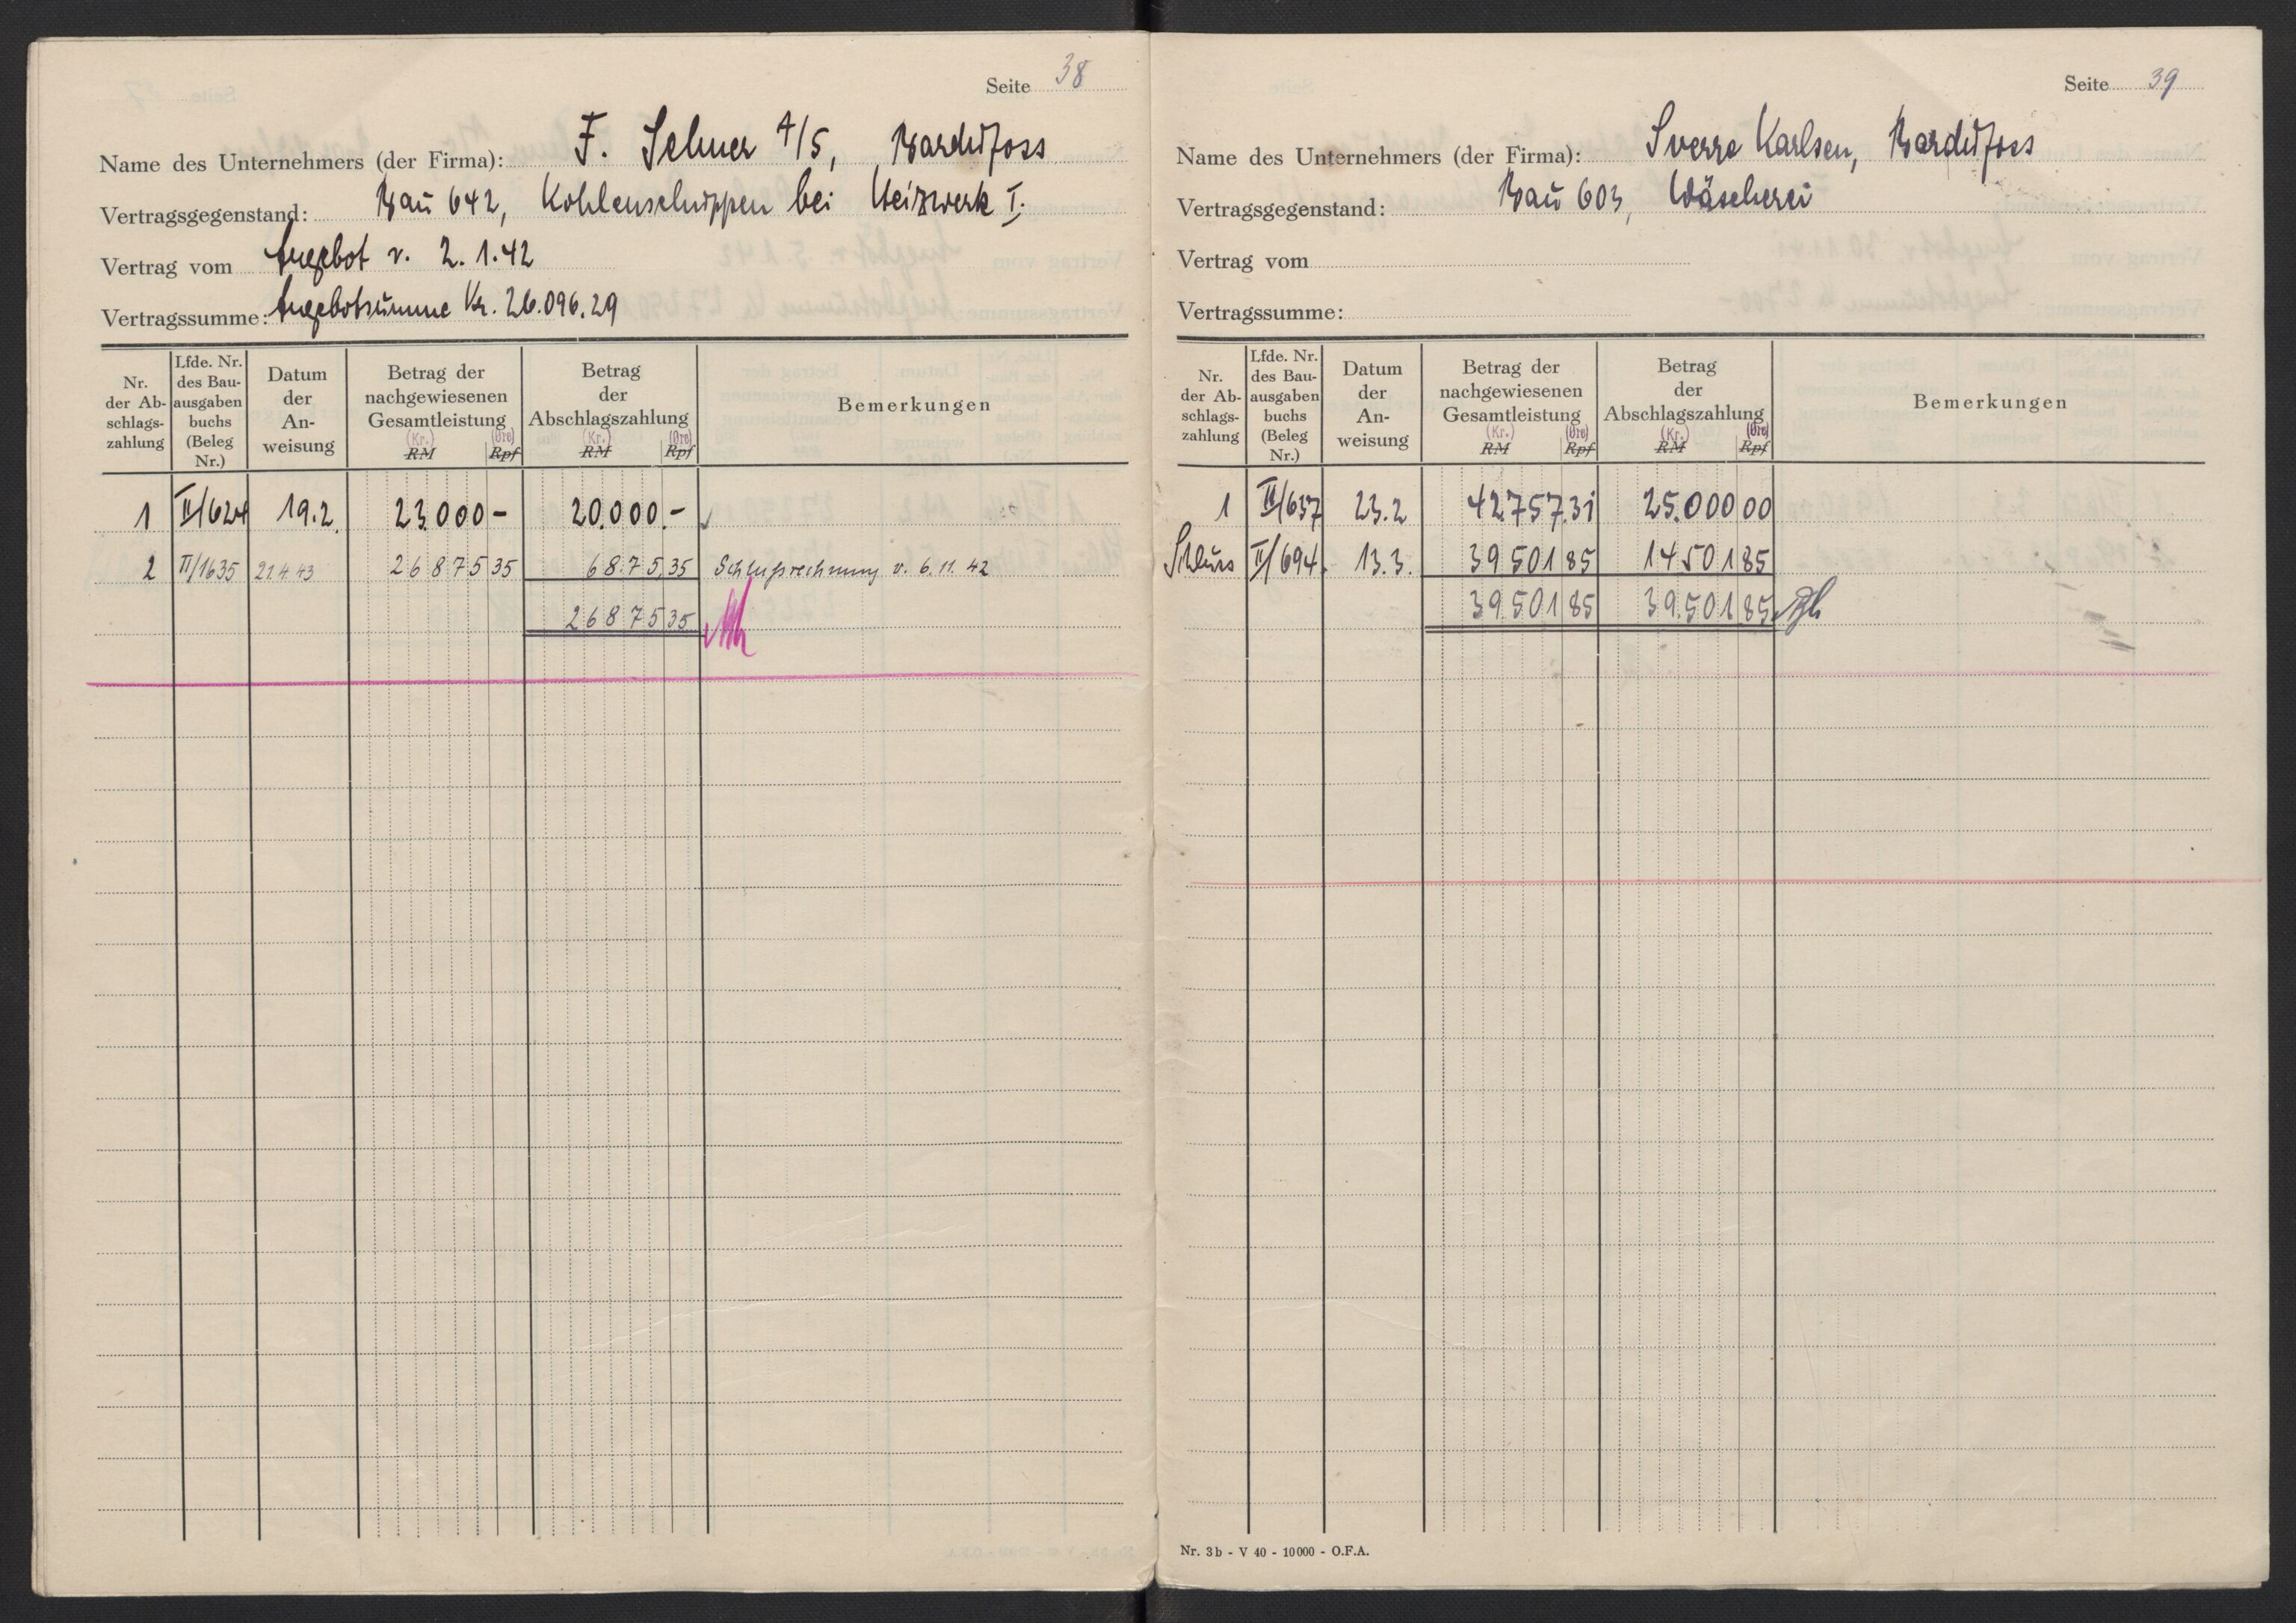 Seite 38
Name des Unternehmers (der Firma): F. Selmer A/S, Bardufoss
Vertragsgegenstand: Bau 642, Kohlenschuppen bei Heizwerk I.
Vertrag vom Angebot v. 2.1.42
Vertragssumme: Angebotsumme Kr. 26.096.29
Nr. der Ab-schlags-zahlung | Lfde. Nr. des Bau-ausgaben buchs (Beleg Nr.) | Datum der An-weisung | Betrag der nachgewiesenen Gesamtleistung (Kr.) RM (Øre) Rpf | Betrag der Abschlagszahlung (Kr.) RM (Øre) Rpf | Bemerkungen
1 II/624 19.2. 23.000 - 20.000.-
2 II/1635 21.4.43 26875 35 6875,35 Schlußrechnung v. 6.11.42
26875 35
Seite 39
Name des Unternehmers (der Firma): Sverre Karlsen, Bardufoss
Vertragsgegenstand: Bau 603, Wäscherei
Vertrag vom
Vertragssumme:
Nr. der Ab-schlags-zahlung | Lfde. Nr. des Bau-ausgaben buchs (Beleg Nr.) | Datum der An-weisung | Betrag der nachgewiesenen Gesamtleistung (Kr.) RM (Øre) Rpf | Betrag der Abschlagszahlung (Kr.) RM (Øre) Rpf | Bemerkungen
1 II/637 23.2 42757.31 25.000 00
Schluss II/694. 13.3. 39501 85 14501 85
39.501 85 39.501 85
Nr. 3b - V 40 - 10000 - O.F.A.